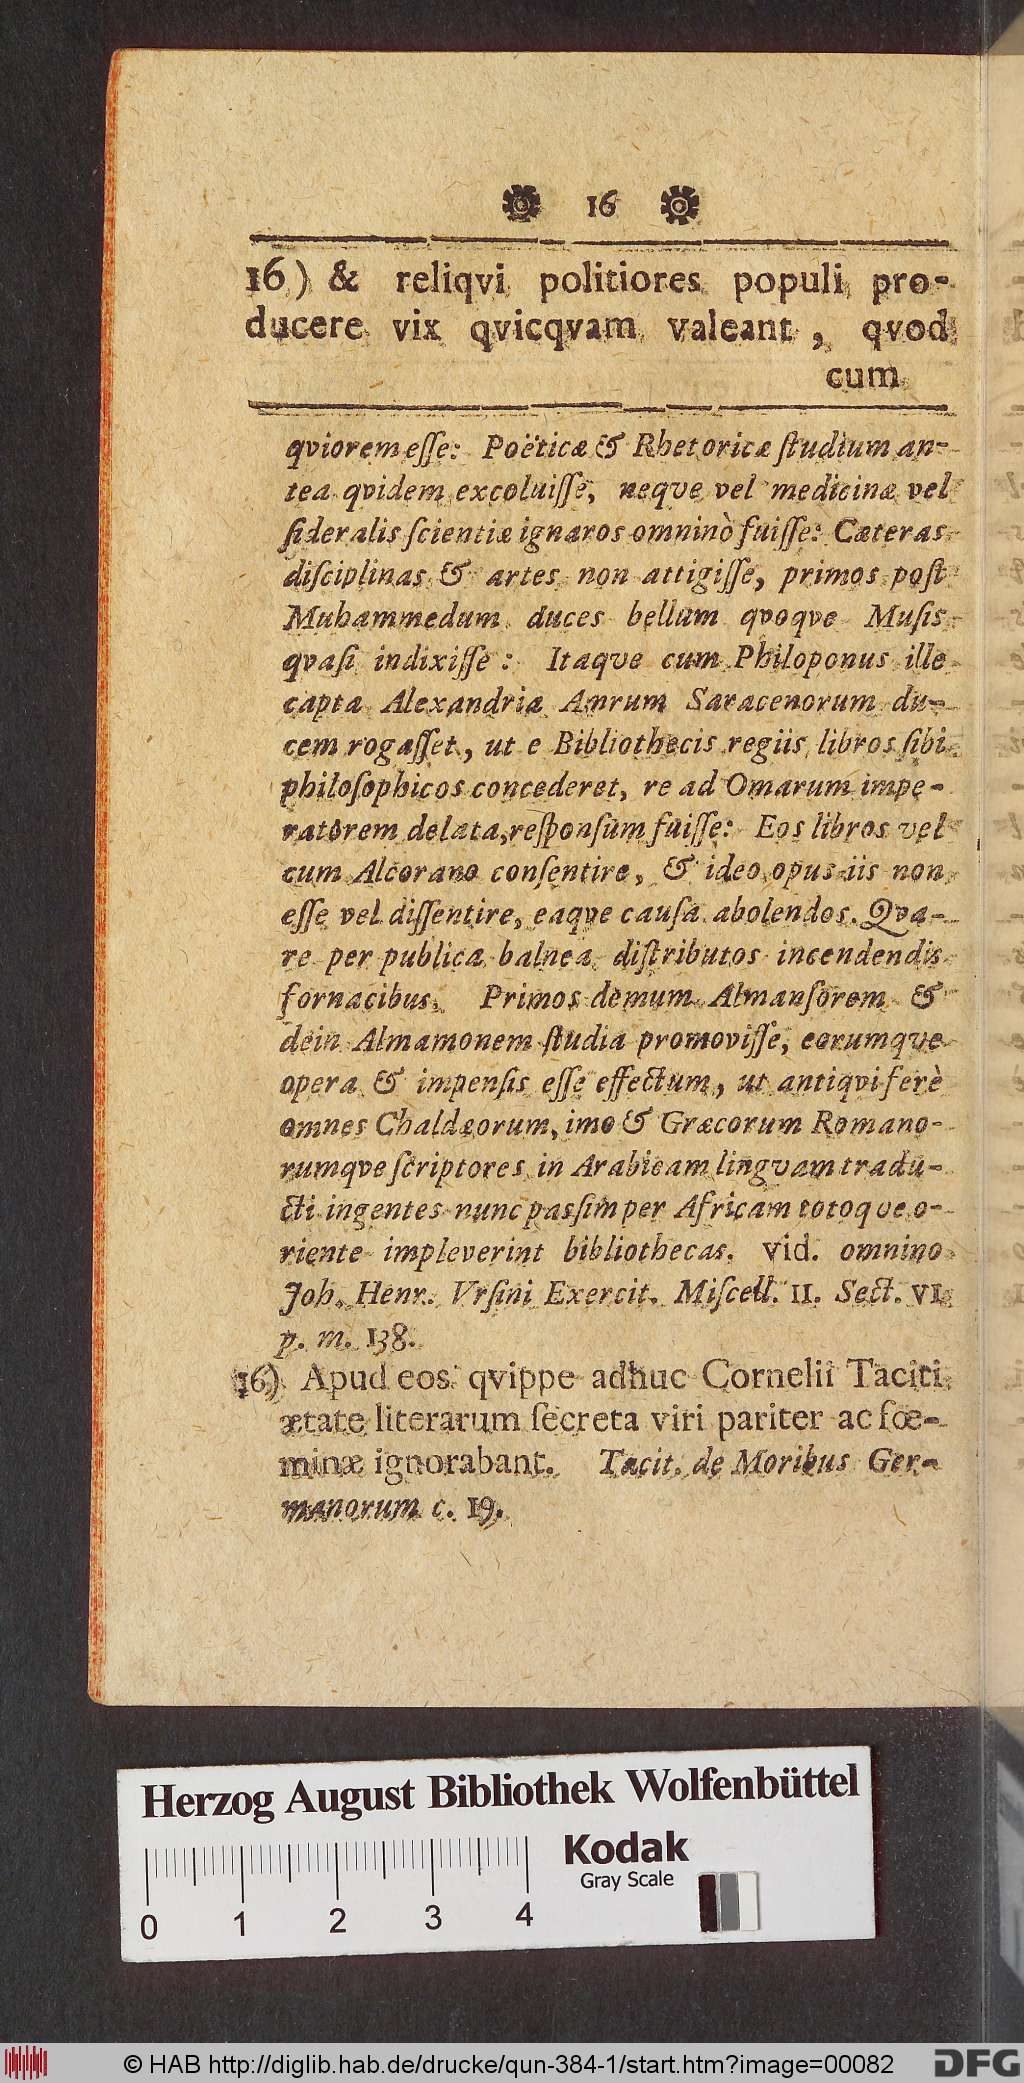 16
16) & reliqvi politiores populi pro-
ducere vix qvicqvam valeant, qvod
cum
qviorem eſſe: Poëticæ & Rhetoricæ ſtudium an-
tea qvidem excoluiſſe, neqve vel medicinæ vel
ſideralis ſcientiæ ignaros omninò fuiſſe: Cæteras
diſciplinas & artes non attigiſſe, primos poſt
Muhammedum duces bellum qvoqve Muſis
qvaſi indixiſſe: Itaqve cum Philoponus ille
capta Alexandria Amrum Saracenorum du-
cem rogaſſet, ut e Bibliothecis regiis libros ſibi
philoſophicos concederet, re ad Omarum impe-
ratorem delata, reſponſum fuiſſe: Eos libros vel
cum Alcorano conſentire, & ideo opus iis non
eſſe vel diſſentire, eaqve cauſa abolendos. Qva-
re per publica balnea diſtributos incendendis
fornacibus. Primos demum Almanſorem &
dein Almamonem ſtudia promoviſſe, eorumqve
opera & impenſis eſſe effectum, ut antiqvi ferè
omnes Chaldæorum, imo & Græcorum Romano-
rumqve ſcriptores in Arabicam lingvam tradu-
cti ingentes nunc paſſim per Africam totoqve o-
riente impleverint bibliothecas. vid. omnino
Joh. Henr. Urſini Exercit. Miſcell. II. Sect. VI.
p. m. 138.
16) Apud eos qvippe adhuc Cornelii Taciti
ætate literarum ſecreta viri pariter ac fœ-
minæ ignorabant. Tacit. de Moribus Ger-
manorum c. 19.
Herzog August Bibliothek Wolfenbüttel
Kodak
Gray Scale
0 1 2 3 4
© HAB http://diglib.hab.de/drucke/qun-384-1/start.htm?image=00082
DFG